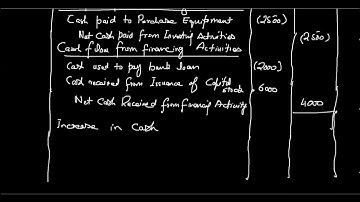 Cash paid to Purchase Equipment (2500)
Net Cash paid from Investing Activities (2500)
Cash flow from financing Activities
Cash used to pay bank loan (2000)
Cash received from Issuance of Capital stock 6000
Net Cash Received from financing Activity 4000
Increase in Cash